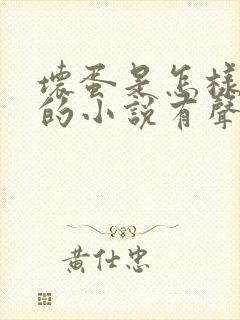 壞蛋是怎樣
的小說有聲
黃仕忠